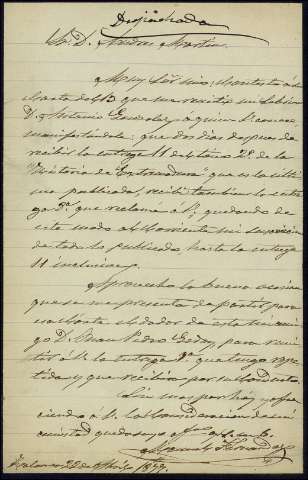 Despachada
Sr. D. Andres Martin.
Muy Sr. mio: Contesto á su
carta del 13 que me remitió su Sobrino
D. Antonio á quien conoce
manifestándole: que dos dias despues de
recibir la entrega 11 del tomo 2º. de la
"Historia de Extremadura" que es la últi-
ma publicada, recibí tambien la entre-
ga 9ª. que reclamé á V., quedando de
este modo al corriente mi
de todo lo publicado hasta la entrega
11 inclusive.
Aprovecho la buena ocasion
que se me presenta de partir para
esa Corte el dador de esta mi ami-
go D. Juan Pedro para remi-
tir á V. la entrega 9ª. que tengo repe-
tida y que recibirá por su conducto.
Sin mas por hoy y ofre-
ciendo á V. la consideracion de mi
amistad queda suyo affmo.
Fernandez
1877.